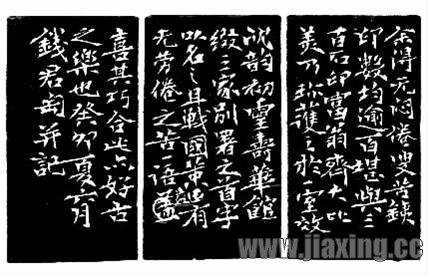 余得无悶倦叟苦鐵
印數均逾百堪與三
百石印富翁齊大比
美乃珍護之於一室效
沈韵初靈壽華館
綴三家別署之首字
以名之且戰國策有
无勞倦之苦一語
喜其巧合此亦好古
之樂也癸卯夏六月
錢君匋并記
www.jiaxing.cc